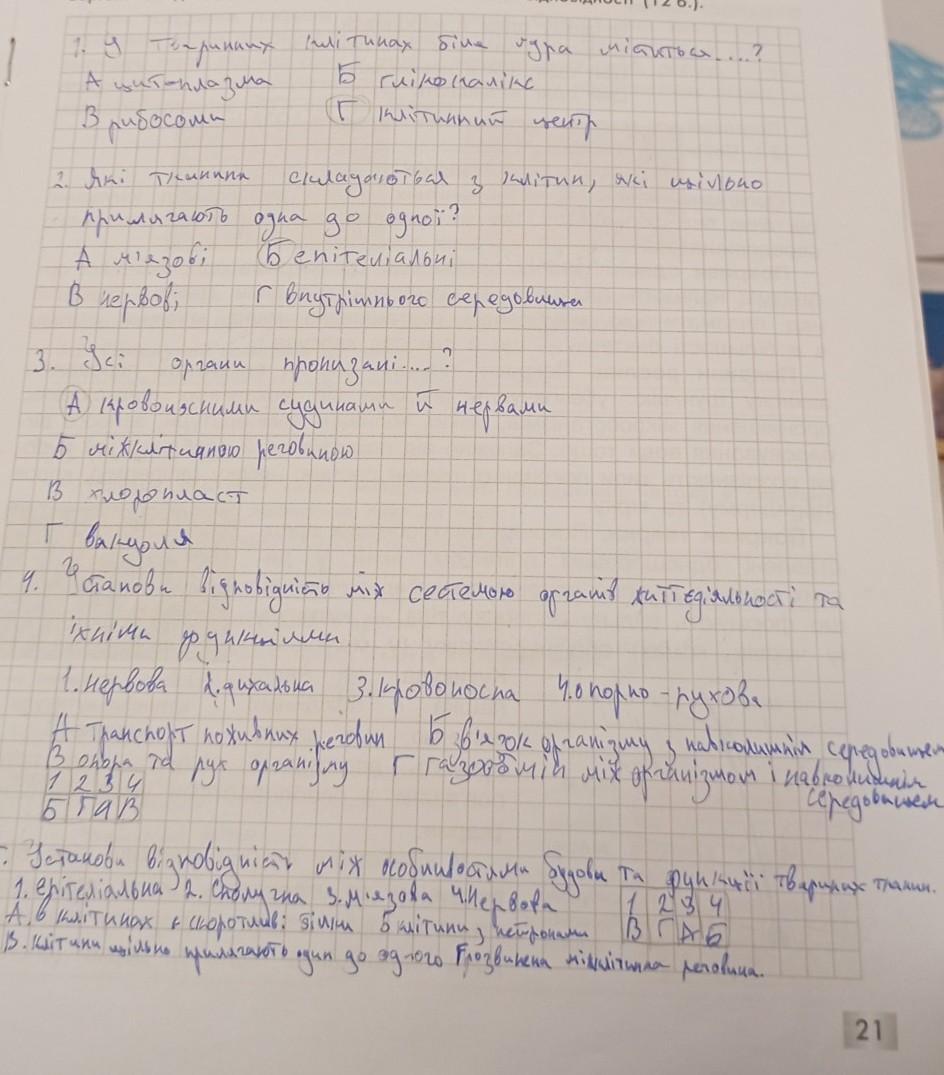 (12 б.).
1. У тваринних клітинах біля ядра міститься....?
А цитоплазма Б глікокалікс
В рибосоми Г клітинний центр
2. Які тканини складаються з клітин, які щільно
прилягають одна до одної?
А м'язові Б епітеліальні
В нервові Г внутрішнього середовища
3. Усі органи пронизані....?
А кровоносними судинами й нервами
Б міжклітинною речовиною
В хлоропласт
Г вакуоля
4. Установи відповідність між системою органів життєдіяльності та
їхніми функціями
1. нервова 2. дихальна 3. кровоносна 4. опорно-рухова
А Транспорт поживних речовин Б зв'язок організму з навколишнім середовищем
В опора та рух організму Г газообмін між організмом і навколишнім
середовищем
1 2 3 4
Б Г А В
Установи відповідність між особливостями будови та функції тваринних тканин.
1. епітеліальна 2. сполучна 3. м'язова 4. Нервова 1 2 3 4
А. в клітинах є скоротливі Б клітини з нейронами В Г А Б
В. клітини щільно прилягають один до одного Г розвинена міжклітинна речовина.
21